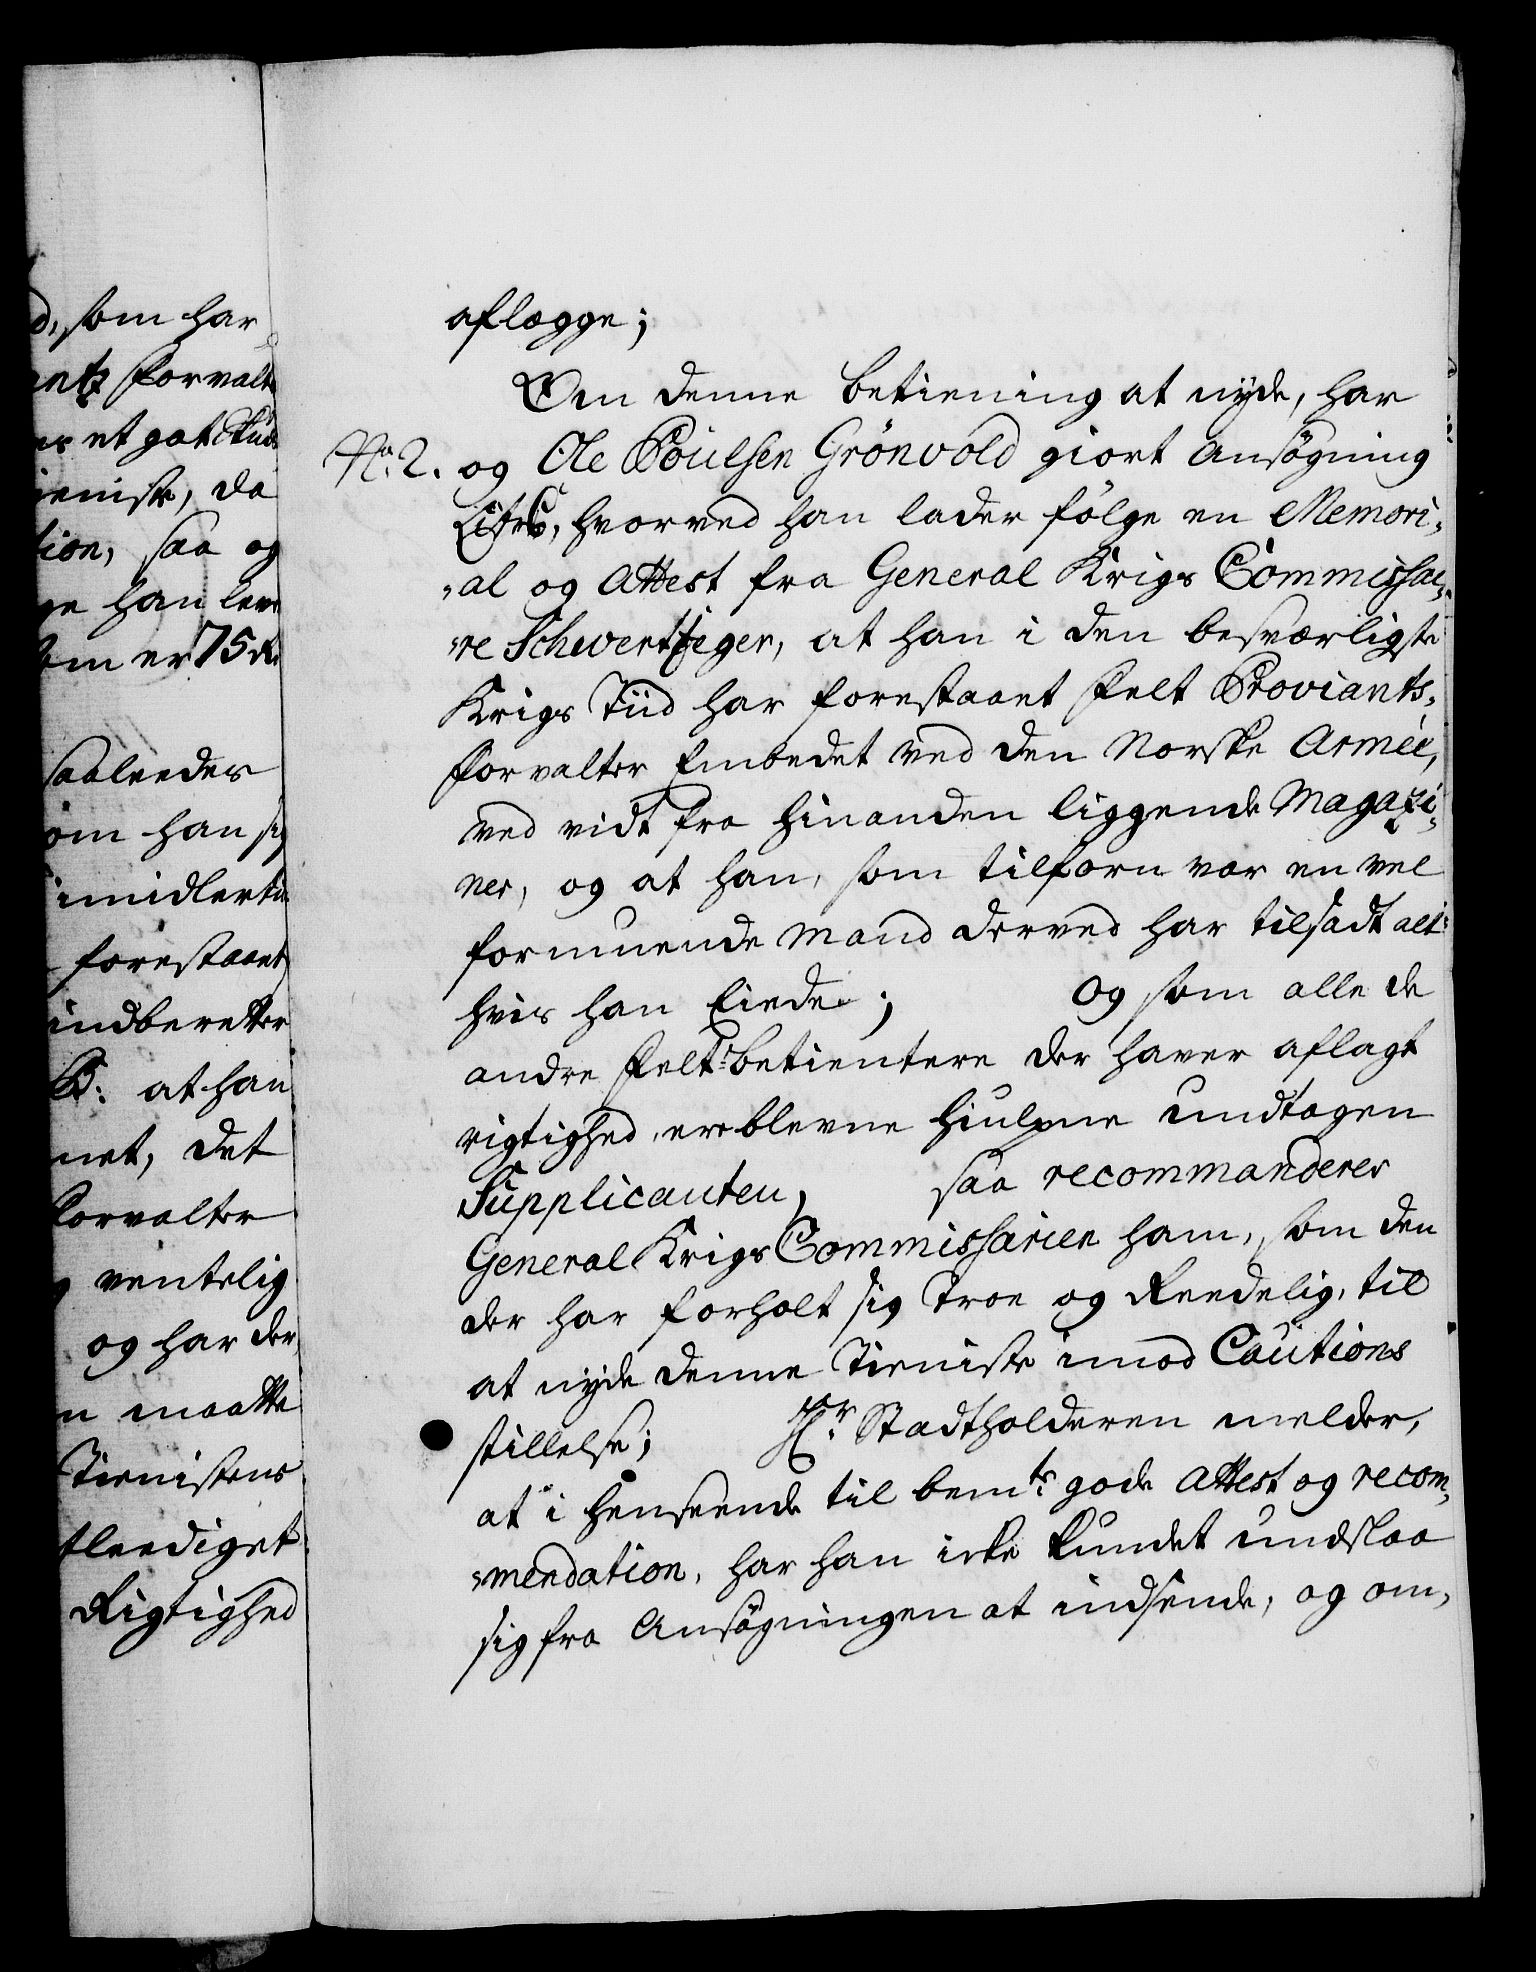 d, som har
antz Forvalt
et got Skud
ieniste, da
tion, saa og
ge han leve
som er 75 Rd
saaleedes
om han sig
imidlertid
forestaaet
indberetter
B: at han
net, det
Forvalter
ventelig
og har der
n maatte
Tienistens
tleediget
Rigtighed
aflegge;
Om denne betiening at nyde, har
No: 2. og Ole Poulsen Grönvold giort Ansögning
Litr: C, hvorved han lader fölge en Memori,
,al og Attest fra General Krigs Commissai,
,re Schwertfeger, at han i den besværligste
Krigs Tiid har forestaaet Felt Proviants,
Forvalter Embedet ved den Norske Armée,
ved vidt fra hinanden liggende Magazi,
ner, og at han, som tilforn var en vel
formuende Mand derved har tilsadt alt
hvis han Eiede; Og som alle de
andre Felt-betientere der haver aflagt
rigtighed, ere blevne hiulpne undtagen
Supplicanten, saa recommanderer
General Krigs Commissarien ham, som den
der har forholt sig Troe og Reedelig, til
at nyde denne Tieniste imod Cautions
stillelse; Hr. Stadtholderen melder,
at i henseende til bemte: gode Attest og recom,
,mendation, har han icke kundet undslaa
sig fra Ansögningen at indsende, og om,